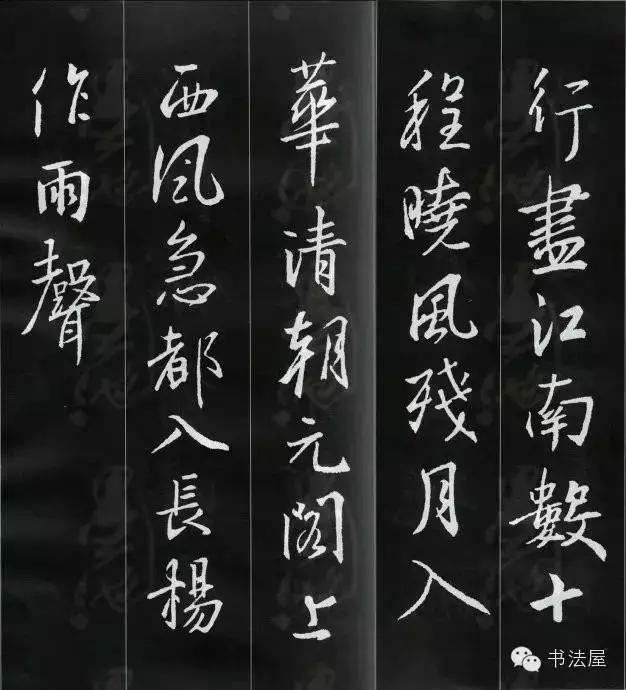 行盡江南數十
程曉風殘月入
華清朝元閣上
西风急都入長楊
作雨聲
书法屋